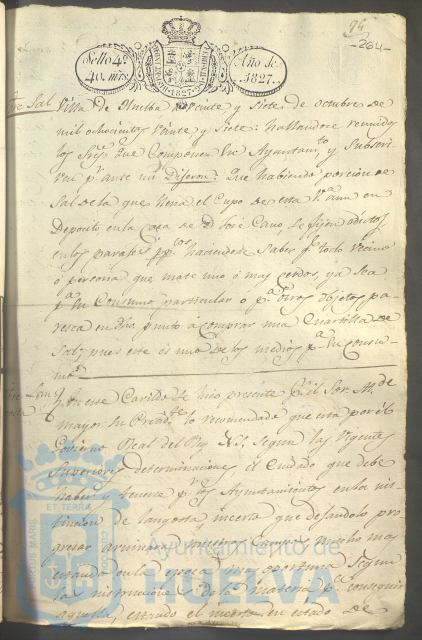 94
264
Sello 4º
40. mrs.
HISPANIAR. 1827.
Año de
1827.
Sal Villa de Huelba, veinte y siete de octubre de
mil ochocientos veinte y siete: hallandose reunidos
los Sres. que componen su Ayuntamto. y subscri-
ven pr. ante mi Dijeron: Que habiendo porcion de
Sal de la que llena el Cupo de esta Va. aun en
Deposito en la Casa de D. José Cano, se fijen edictos
en los parajes ppcos. haciendose saber qe. todo vecino
ó persona que mate uno ó mas cerdos, ya sea
pa. su Consumo particular ó pa. otros objetos pa-
resca en dho. punto á comprar una Cuartilla de
Sal, pues este es uno de los medios pa. su consu-
mo.
En este Cavildo se hizo presente pr. el Sor. Al.de
mayor su Presid.te lo recomendado que está por el
Govierno Real del Rey N.S. segun las vigentes
Superiores determinaciones el cuidado que debe
haber y tenerse pr. los Ayuntamientos en la es-
tincion de langosta, insecto que dejandolo pro-
gresar arruina nuestros Campos, mucho mas
estando en la epoca mas oportuna segun
las instrucciones de la materia pa. conseguir
aquella, estando el insecto en estado de
Ayuntamiento de
HUELVA
PORTUS MARIS
ET TERRÆ
CUSTODIA